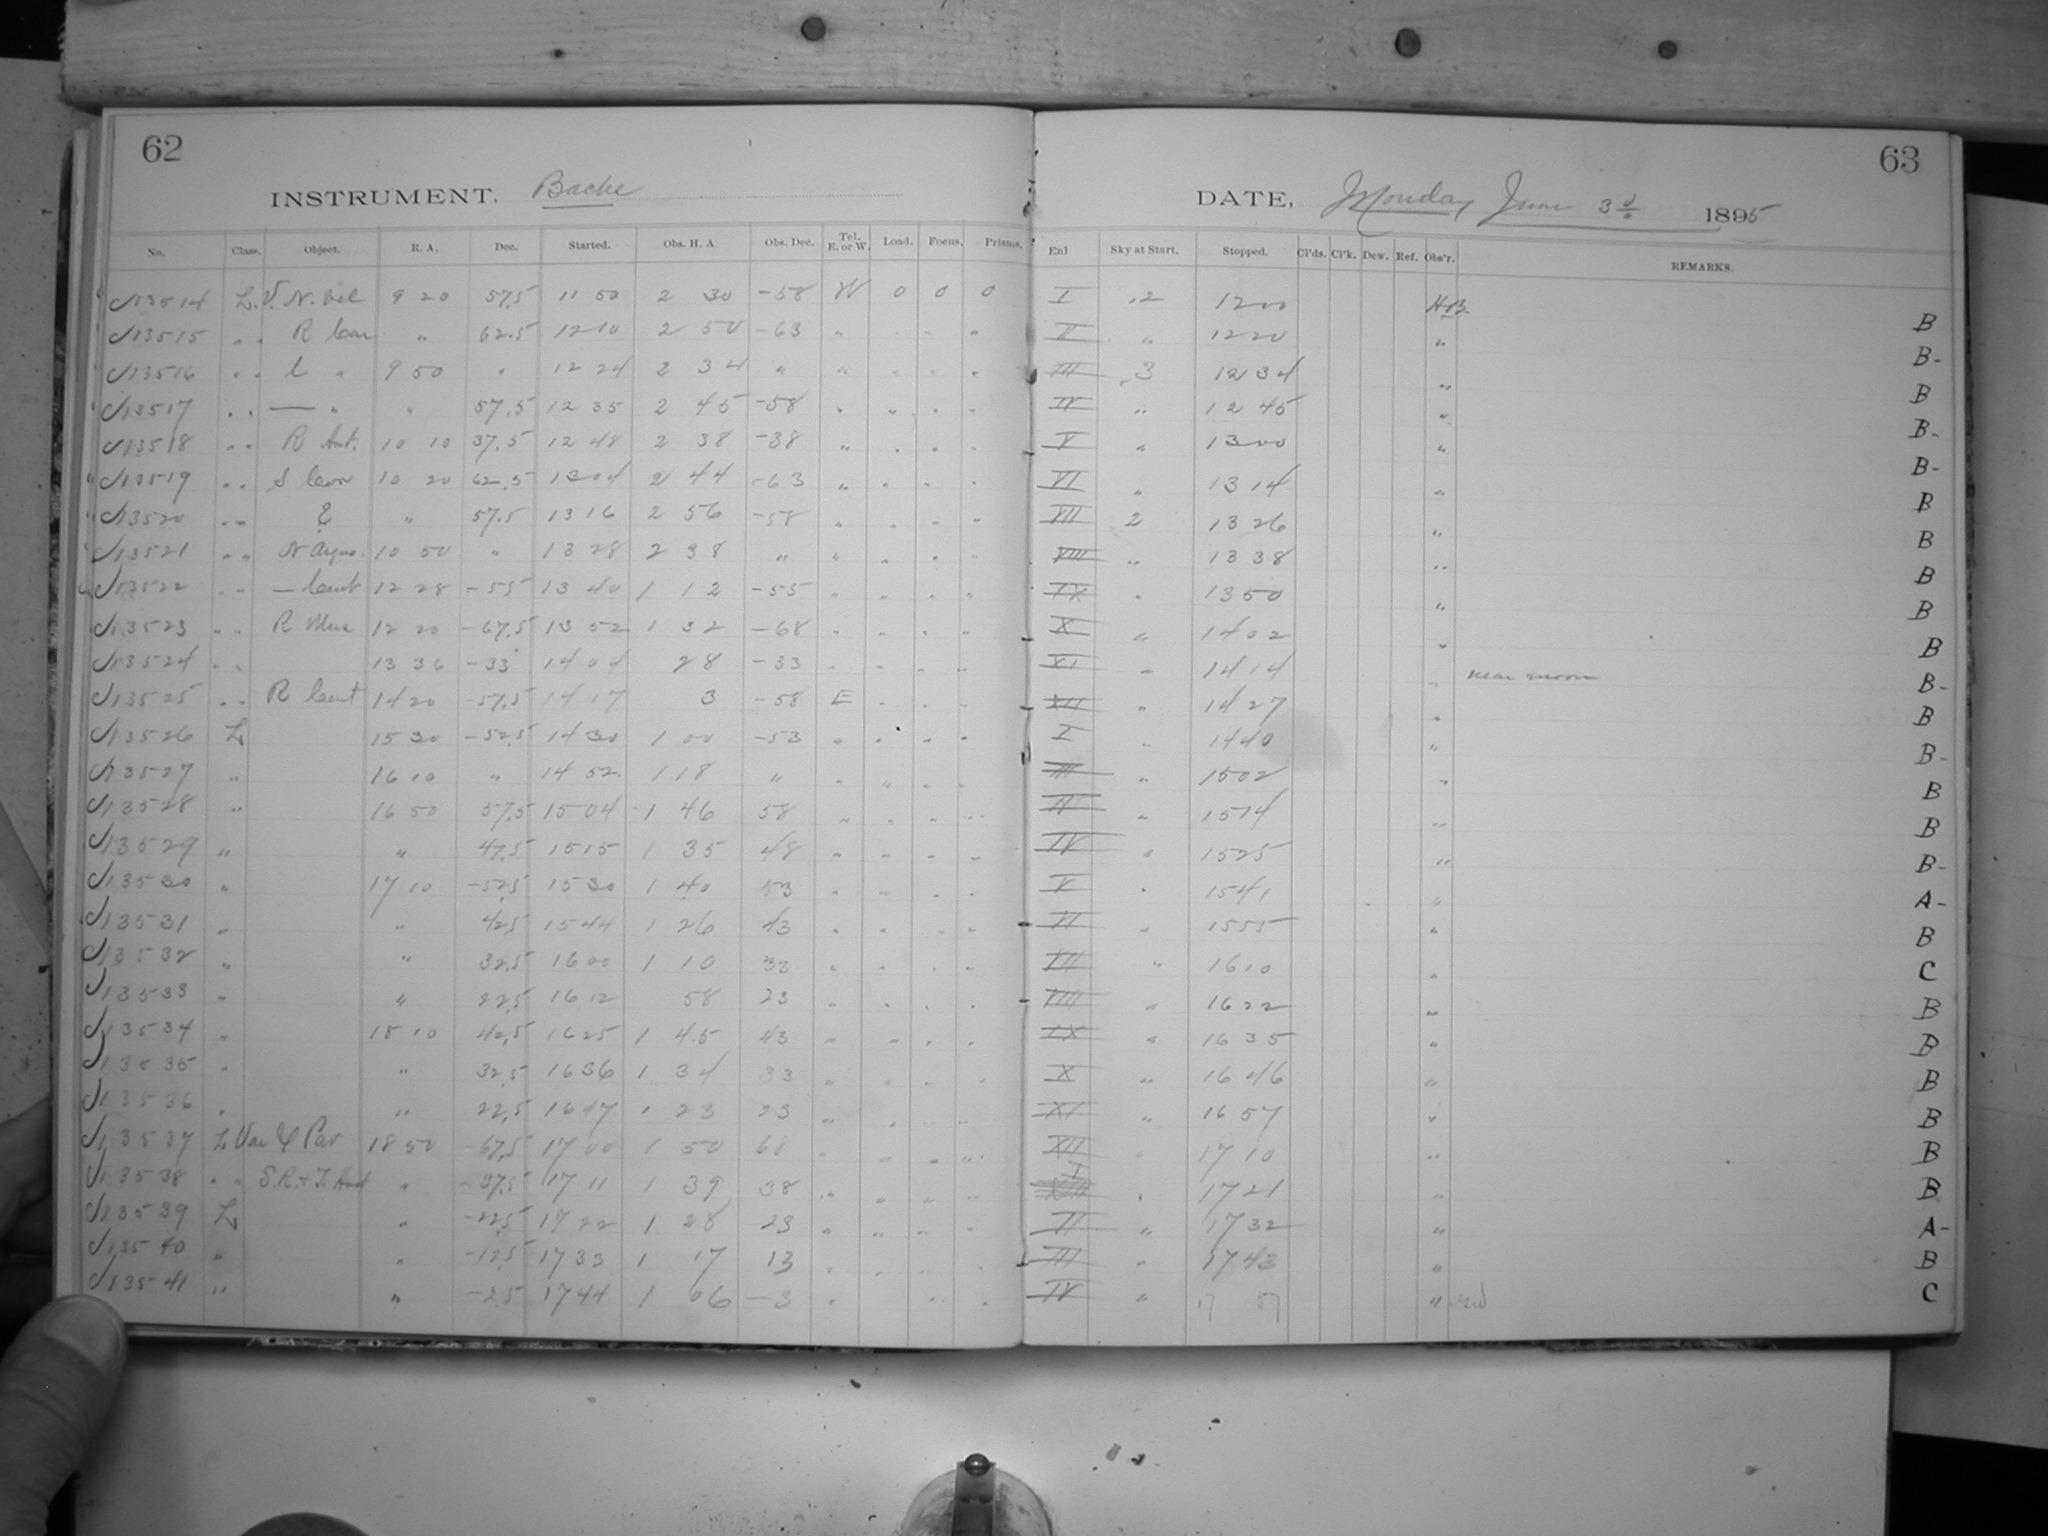 62
63
INSTRUMENT, Bache
DATE, Monday June 3d 1895
No. Class. Object. R. A. Dec. Started. Obs. H. A. Obs. Dec. Tel. E. or W. Load. Focus. Prisms. Enl Sky at Start. Stopped. Cl'ds. Cl'k. Dew. Ref. Obs'r. REMARKS.
13514 L. V. N. Vel 9 20 57.5 11 50 2 30 -58 W 0 0 0 I 2 1200 B
13515 " " R Car " 62.5 1210 2 50 -63 " " " " II " 1220 " B-
13516 " " l " 9 50 " 12 24 2 34 " " " " " III 3 12 34 " B
13517 " " — " " 57.5 12 35 2 45 -58 " " " " IV " 12 45 " B-
13518 " " R Ant. 10 10 37.5 12 48 2 38 -38 " " " " V " 1300 " B-
13519 " " S Carn 10 20 62.5 1304 2 44 -63 " " " " VI " 13 14 " B
13520 " " " 57.5 13 16 2 56 -58 " " " " VII 2 13 26 " B
13521 " " N Argus 10 50 " 13 28 2 38 " " " " " VIII " 13 38 " B
13522 " " — Cent 12 28 -55 13 40 1 12 -55 " " " " IX " 1350 " B
13523 " " R Mus 12 20 -67.5 13 52 1 32 -68 " " " " X " 1402 " B
13524 " " 13 36 -33 1404 28 -33 " " " " XI " 1414 " near moon B-
13525 " " R Cent 1420 -57.5 1417 3 -58 E " " " XII " 1427 " B
13526 L 1530 -52.5 1430 1 00 -53 " " " " I " 1440 " B-
13527 " 1610 " 14 52 1 18 " " " " " III " 1502 " B
13528 " 16 50 57.5 1504 1 46 58 " " " " " 1514 " B
13529 " " 47.5 1515 1 35 48 " " " " IV " 1525 " B-
13530 " 17 10 -52.5 1530 1 40 53 " " " " V " 1541 " A-
13531 " " 42.5 1544 1 26 43 " " " " VI " 1555 " B
13532 " " 32.5 1600 1 10 33 " " " " VII " 1610 " C
13533 " " 22.5 1612 58 23 " " " " VIII " 1622 " B
13534 " 18 10 42.5 1625 1 45 43 " " " " IX " 1635 " B
13535 " " 32.5 1636 1 34 33 " " " " X " 1646 " B
13536 " " 22.5 1647 1 23 23 " " " " XI " 16 57 " B
13537 L Var Pav 18 50 -67.5 1700 1 50 68 " " " " XII " 1710 " B
13538 " " S. R. & T. " -37.5 1711 1 39 38 " " " " I " 1721 " B
13539 L " -22.5 1722 1 28 23 " " " " II " 1732 " A-
13540 " " -12.5 1733 1 17 13 " " " " III " 1743 " B
13541 " " -2.5 1744 1 06 -3 " " " IV " 17 57 " C